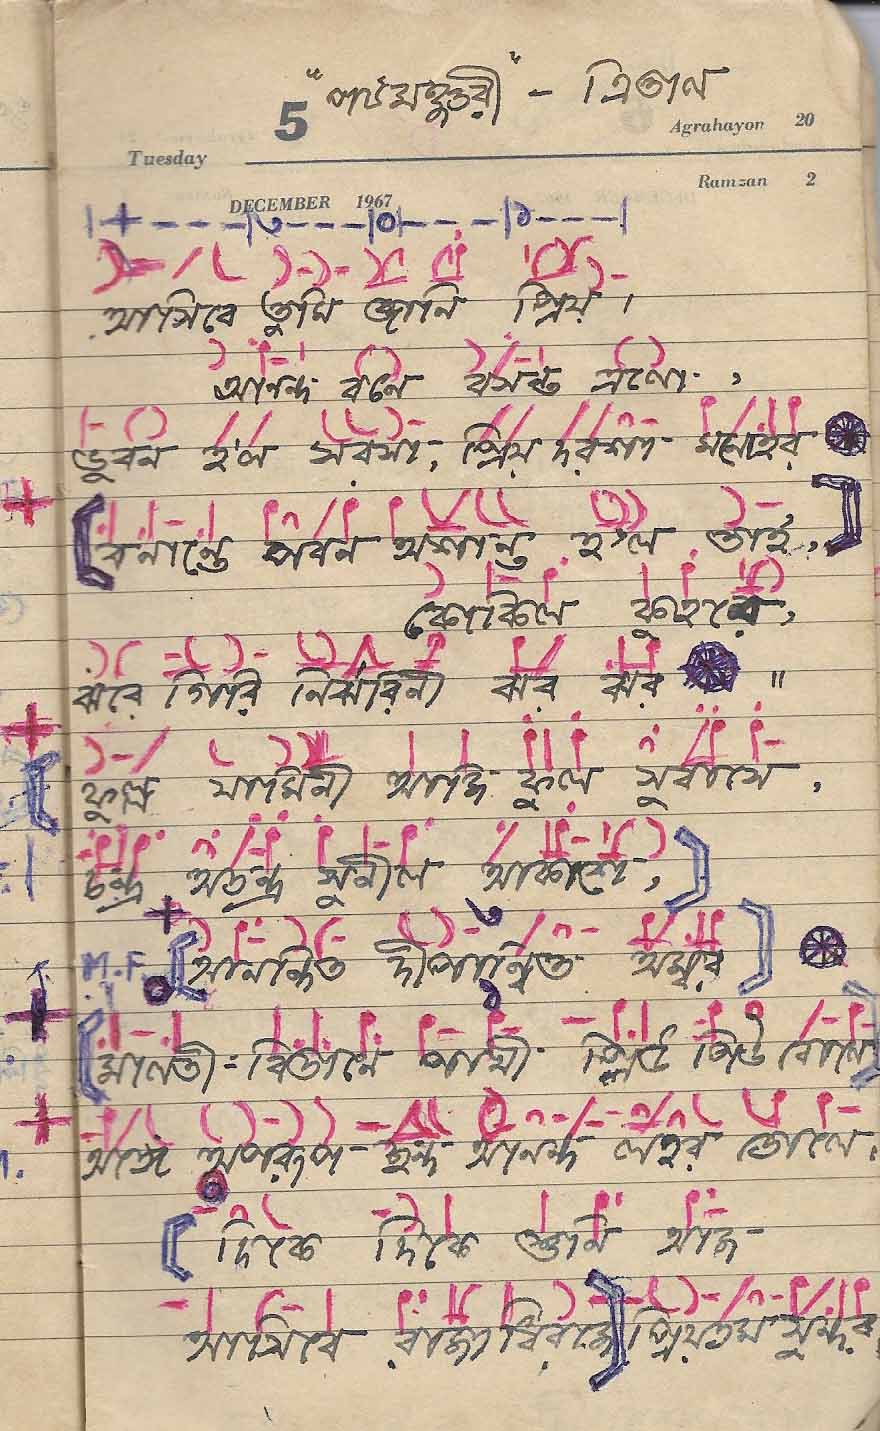 "পটমঞ্জুরী" - ত্রিতাল
5
Agrahayon 20
Tuesday
Ramzan 2
DECEMBER 1967
আসিবে তুমি জানি প্রিয় ।
আনন্দ বনে বসন্ত এলো ,
ভুবন হ'ল সরসা, প্রিয় দরশা মনোহর
বনান্তে পবন অশান্ত হ'ল তাই,
কোকিল কুহরে,
ঝরে গিরি নির্ঝরিনী ঝর ঝর ॥
ফুল্ল যামিনী আজি ফুল সুবাসে ,
চন্দ্র অতন্দ্র সুনীল আকাশে,
M.F. আনন্দিত দীপান্বিত অম্বর
মালতী বিতানে পাখী পিউ পিউ বোলে
অঙ্গে অপরূপ ছন্দ আনন্দ লহর তোলে,
দিকে দিকে শুনি আজ
আসিবে রাজাধিরাজ প্রিয়তম সুন্দর